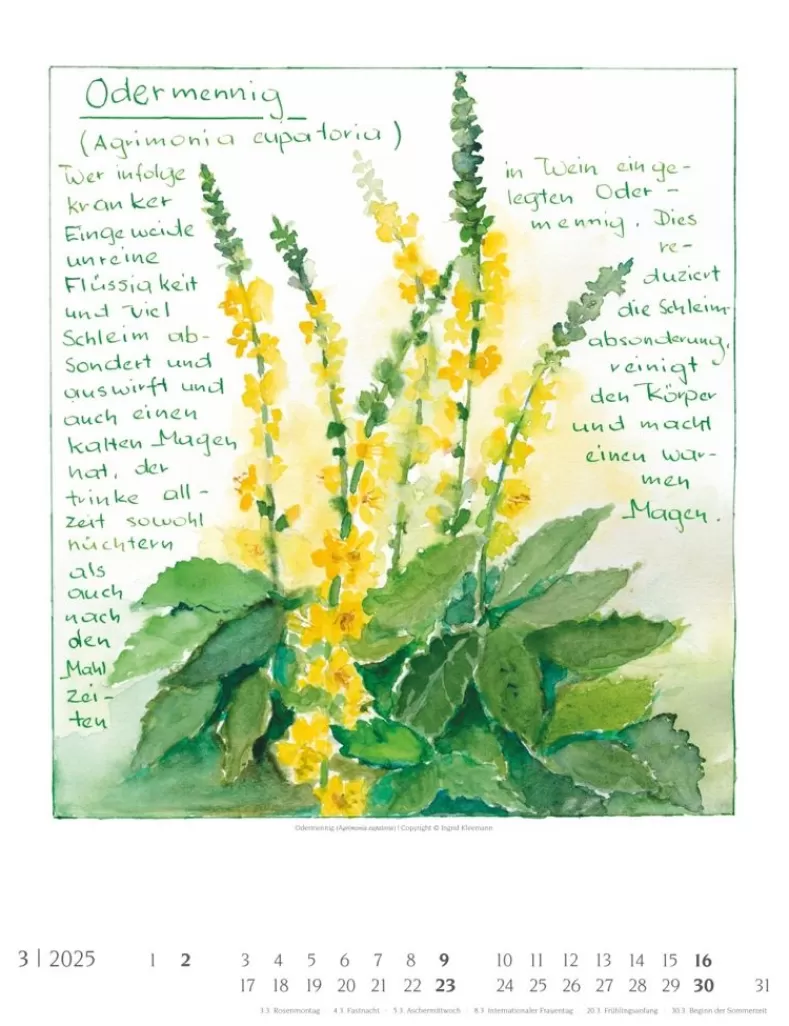 Odermennig
(Agrimonia eupatoria)
Wer infolge
kranker
Eingeweide
unreine
Flüssigkeit
und viel
Schleim ab-
sondert und
auswirft und
auch einen
kalten Magen
hat, der
trinke all-
zeit sowohl
nüchtern
als
auch
nach
den
Mahl
zei-
ten
in Wein einge-
legten Oder-
mennig. Dies
re-
duziert
die Schleim-
absonderung,
reinigt
den Körper
und macht
einen war-
men
Magen.
Odermennig (Agrimonia eupatoria) | Copyright © Ingrid Kleemann
3 | 2025 1 2 3 4 5 6 7 8 9 10 11 12 13 14 15 16
17 18 19 20 21 22 23 24 25 26 27 28 29 30 31
3.3. Rosenmontag · 4.3. Fastnacht · 5.3. Aschermittwoch · 8.3. Internationaler Frauentag · 20.3. Frühlingsanfang · 30.3. Beginn der Sommerzeit